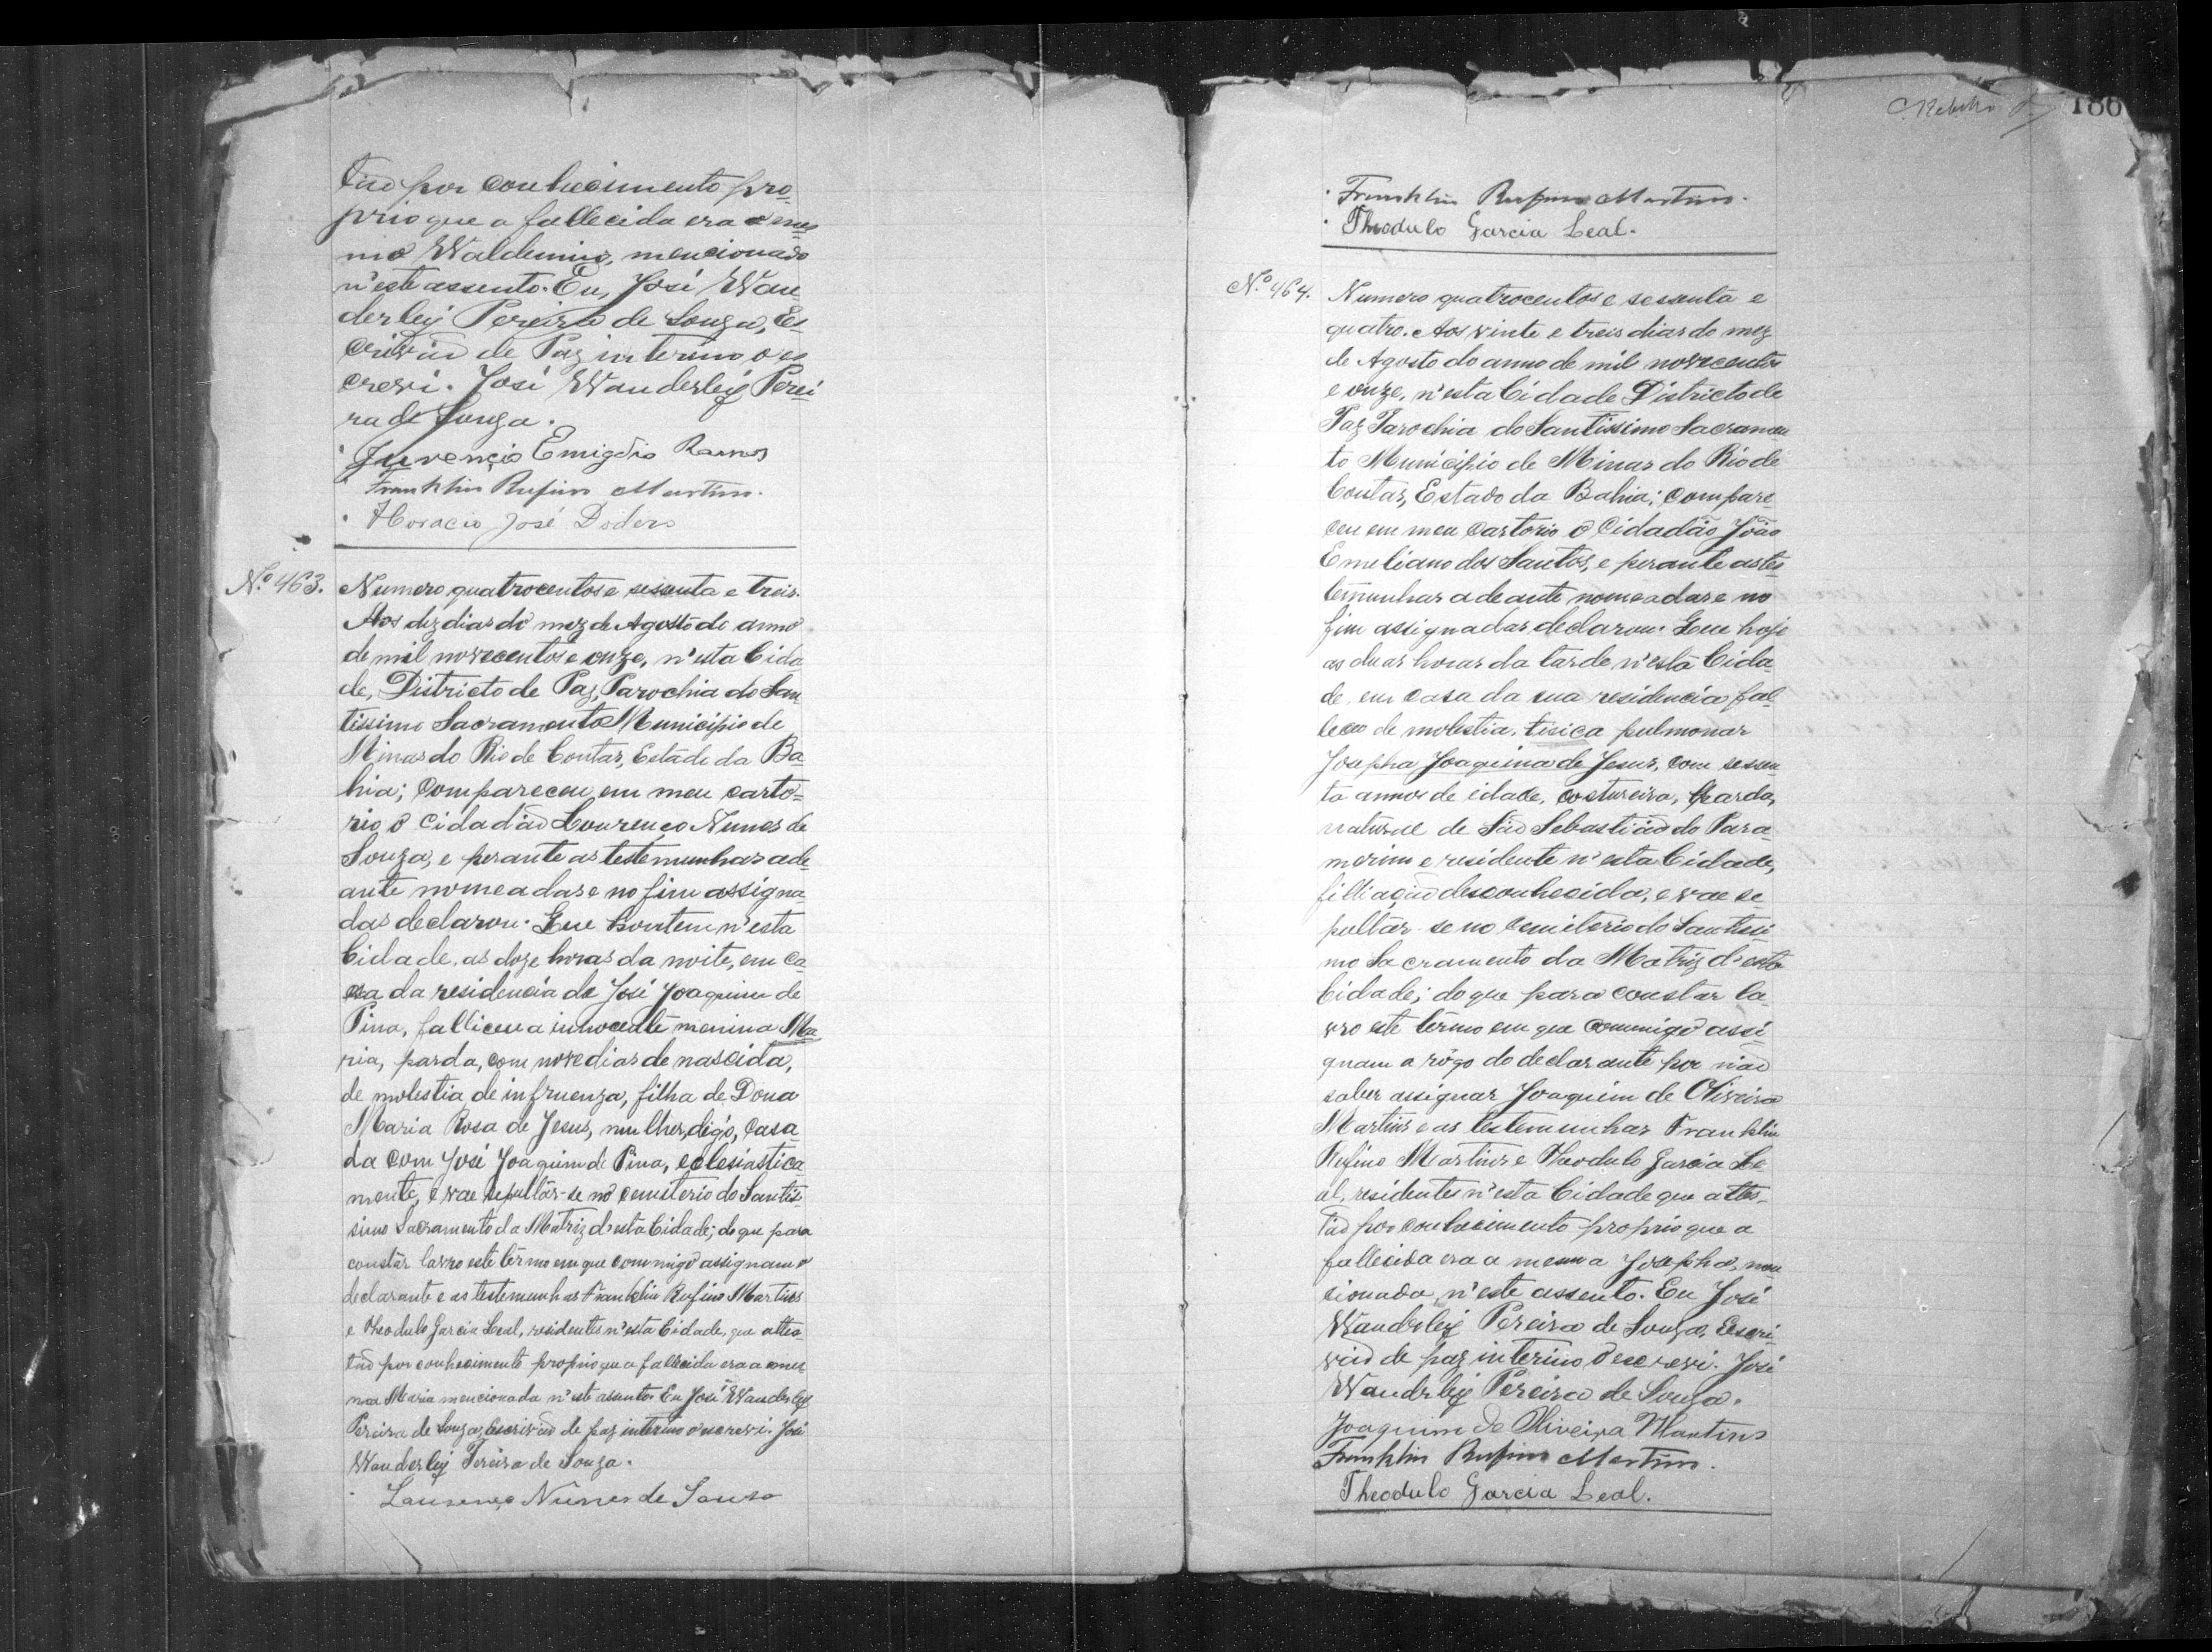 tão por conhecimento pro-
prio que a fallecida era o mes
mo Waldemiro, mencionado
n'este assento. Eu, José Wan
derley Pereira de Souza, Es-
crivão de Paz interino o es
crevi. José Wanderley Perei
ra de Souza.
Juvencio Emigdio Ramos
Franklin Rufino Martins.
Horacio José Dodero
Nº 463. Numero quatrocentos e sessenta e treis.
Aos dez dias do mez de Agosto do anno
de mil novecentos e onze, n'esta Cida
de, Districto de Paz, Parochia do San
tissimo Sacramento Municipio de
Minas do Rio de Contas, Estado da Ba
hia; compareceu em meu carto=
rio o Cidadão Lourenco Nunes de
Souza, e perante as testemunhas ade
ante nomeadas e no fim assigna
das declarou. Que hontem n'esta
Cidade, as doze horas da noite, em ca
sa da residencia de José Joaquim de
Pina, falliceu a innocente menina Ma
ria, parda, com nove dias de nascida,
de molestia de infruenza, filha de Dona
Maria Rosa de Jesus, mulher, digo, casa
da com José Joaquim de Pina, eclesiastica
mente, e vae sepultar-se no cemiterio do Santis
simo Sacramento da Matriz d'esta Cidade; do que para
constar lavro este têrmo em que commigo assignam o
declarante e as testemunhas Franklin Rufino Martins
e Theodulo Garcia Leal, residentes n'esta Cidade, que attes-
tão por conhecimento proprio que a fallecida era a mes
ma Maria mencionada n'este assento. Eu José Wanderley
Pereira de Souza, Escrivão de paz interino o escrevi. José
Wanderley Pereira de Souza.
Lourenço Nunes de Souza
186
Franklin Rufino Martins.
Theodulo Garcia Leal.
Nº 464. Numero quatrocentos e sessenta e
quatro. Aos vinte e treis dias do mez
de Agosto do anno de mil novecentos
e onze, n'esta Cidade Districto de
Paz Parochia do Santissimo Sacramen
to Municipio de Minas do Rio de
Contas, Estado da Bahia; compare
ceu em meu cartorio o Cidadão João
Emeliano dos Santos, e perante as tes
temunhas adeante nomeadas e no
fim assignadas declarou. Que hoje
as duas horas da tarde n'esta Cida
de, em casa da sua residencia fal
leceu de molestia, tisica pulmonar
Josepha Joaquina de Jesus, com sessen
ta annos de edade, costureira, parda,
natural de São Sebastião do Para
merim e residente n'esta Cidade,
filliação desconhecida, e vae se
pultar-se no Cemiterio do Santissi
mo Sacramento da Matriz d'esta
Cidade; do que para constar la
vro este têrmo em que commigo assi
gnam a rôgo do declarante por não
saber assignar Joaquim de Oliveira
Martins e as testemunhas Franklin
Rufino Martins e Theodulo Garcia Le
al, residentes n'esta Cidade que attes-
tão por conhecimento proprio que a
fallecida era a mesma Josepha, men
cionada n'este assento. Eu José
Wanderley Pereira de Souza, Escri
vão de paz interino o escrevi. José
Wanderley Pereira de Souza.
Joaquim de Oliveira Martins
Franklin Rufino Martins.
Theodulo Garcia Leal.